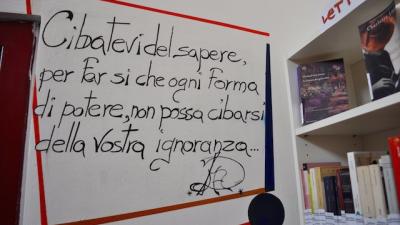 Cibatevi del sapere,
per far si che ogni forma
di potere, non possa cibarsi
della vostra ignoranza...
LETT